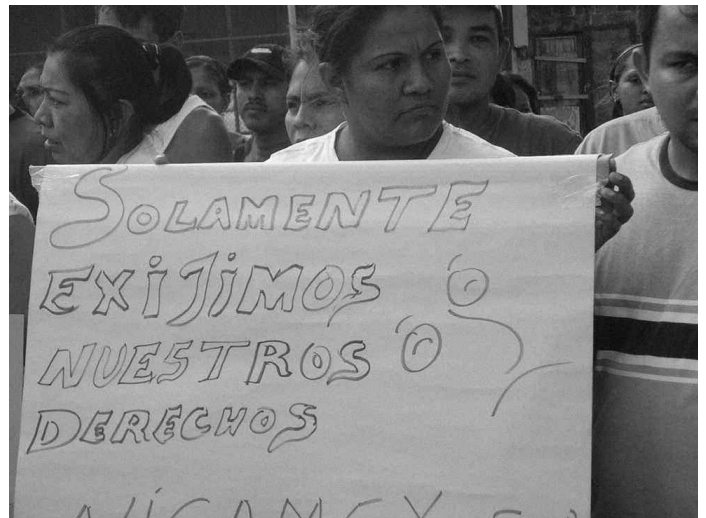 SOLAMENTE
EXIJIMOS
NUESTROS
DERECHOS